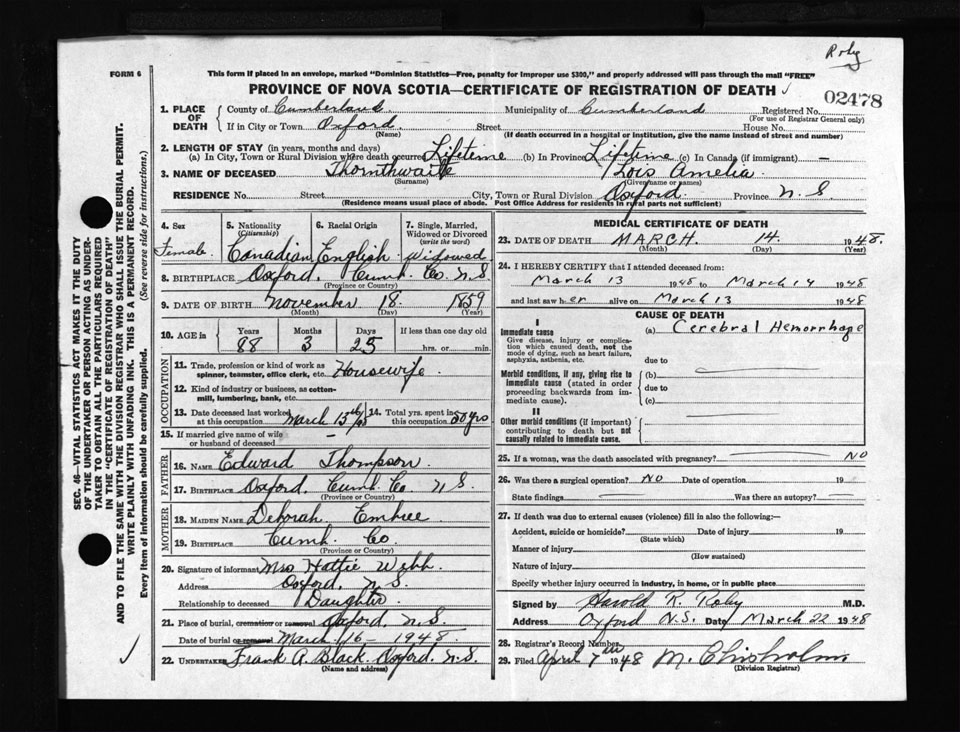 Roby
FORM 6
This form if placed in an envelope, marked "Dominion Statistics—Free, penalty for improper use $300," and properly addressed will pass through the mail "FREE"
PROVINCE OF NOVA SCOTIA—CERTIFICATE OF REGISTRATION OF DEATH
02478
1. PLACE OF DEATH { County of Cumberland Municipality of Cumberland Registered No.
(For use of Registrar General only)
If in City or Town Oxford Street House No.
(Name) (If death occurred in a hospital or institution, give the name instead of street and number)
2. LENGTH OF STAY (in years, months and days)
(a) In City, Town or Rural Division where death occurred Lifetime (b) In Province Lifetime (c) In Canada (if immigrant) —
3. NAME OF DECEASED Thornthwaite Lois Amelia
(Surname) (Given name or names)
RESIDENCE No. Street City, Town or Rural Division Oxford Province N.S
(Residence means usual place of abode. Post Office Address for residents in rural parts not sufficient)
4. Sex Female
5. Nationality (Citizenship) Canadian
6. Racial Origin English
7. Single, Married, Widowed or Divorced (write the word) Widowed
8. BIRTHPLACE Oxford, Cumb. Co. N.S
(Province or Country)
9. DATE OF BIRTH November 18 1859
(Month) (Day) (Year)
10. AGE in Years 88 Months 3 Days 25 If less than one day old hrs. or min.
OCCUPATION
11. Trade, profession or kind of work as spinner, teamster, office clerk, etc. Housewife
12. Kind of industry or business, as cotton-mill, lumbering, bank, etc.
13. Date deceased last worked at this occupation March 13th/48 14. Total yrs. spent in this occupation 50 yrs
15. If married give name of wife or husband of deceased —
FATHER
16. NAME Edward Thompson
17. BIRTHPLACE Oxford, Cumb. Co. N S
(Province or Country)
MOTHER
18. MAIDEN NAME Deborah Embree
19. BIRTHPLACE Cumb. Co
(Province or Country)
20. Signature of informant Mrs Hattie Webb
Address Oxford, N.S.
Relationship to deceased Daughter
21. Place of burial, cremation or removal Oxford, N.S.
Date of burial or removal March 16 - 1948
22. UNDERTAKER Frank A. Black. Oxford. N.S.
(Name and address)
MEDICAL CERTIFICATE OF DEATH
23. DATE OF DEATH MARCH 14 1948.
(Month) (Day) (Year)
24. I HEREBY CERTIFY that I attended deceased from:
March 13 1948 to March 14 1948
and last saw her alive on March 13 1948
CAUSE OF DEATH
I
Immediate cause (a) Cerebral Hemorrhage
Give disease, injury or complication which caused death, not the mode of dying, such as heart failure, asphyxia, asthenia, etc.
due to
Morbid conditions, if any, giving rise to immediate cause (stated in order proceeding backwards from immediate cause).
(b)
due to
(c)
II
Other morbid conditions (if important) contributing to death but not causally related to immediate cause.
25. If a woman, was the death associated with pregnancy? NO
26. Was there a surgical operation? NO Date of operation 19
State findings Was there an autopsy?
27. If death was due to external causes (violence) fill in also the following:—
Accident, suicide or homicide? Date of injury 19
(State which)
Manner of injury
(How sustained)
Nature of injury
Specify whether injury occurred in industry, in home, or in public place
Signed by Harold R. Roby M.D.
Address Oxford N.S. Date March 22 1948
28. Registrar's Record Number
29. Filed April 7th 1948 M. Chisholm
(Division Registrar)
SEC. 46—VITAL STATISTICS ACT MAKES IT THE DUTY
OF THE UNDERTAKER OR PERSON ACTING AS UNDER-
TAKER TO OBTAIN ALL THE PARTICULARS REQUIRED
IN THE "CERTIFICATE OF REGISTRATION OF DEATH"
AND TO FILE THE SAME WITH THE DIVISION REGISTRAR WHO SHALL ISSUE THE BURIAL PERMIT.
WRITE PLAINLY WITH UNFADING INK. THIS IS A PERMANENT RECORD.
Every item of information should be carefully supplied. (See reverse side for instructions.)